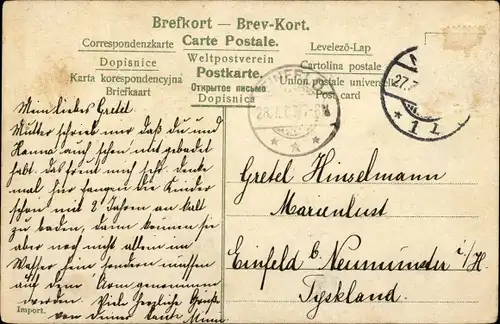 Brefkort — Brev-Kort.
Correspondenzkarte
Carte Postale.
Levelező-Lap
Dopisnice
Weltpostverein
Cartolina postale
Karta korespondencyjna
Postkarte.
Union postale universelle
Briefkaart
Открытое письмо
Post card
Dopisnica
EINFELD
27.7
1 1
Mein liebes Gretel.
Mutter schrieb mir daß du und
Hanna auch schon mit gebadet
habt. das freut mich sehr. denke
mal hier fangen die Kinder
schon mit 2 Jahren an kalt
zu baden, dann können sie
aber noch nicht allein im
Wasser sein sondern müssen
auf dem Arm genommen
werden. Viel herzliche Grüße
von deiner Tante
Gretel Hinselmann
Marienlust
Einfeld b. Neumünster i/H.
Tyskland.
Import.